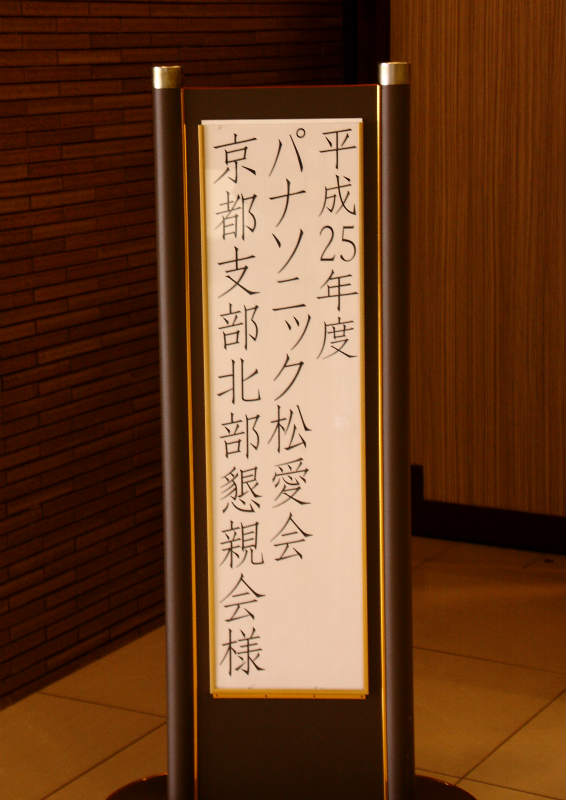 平成25年度
パナソニック松愛会
京都支部北部懇親会様